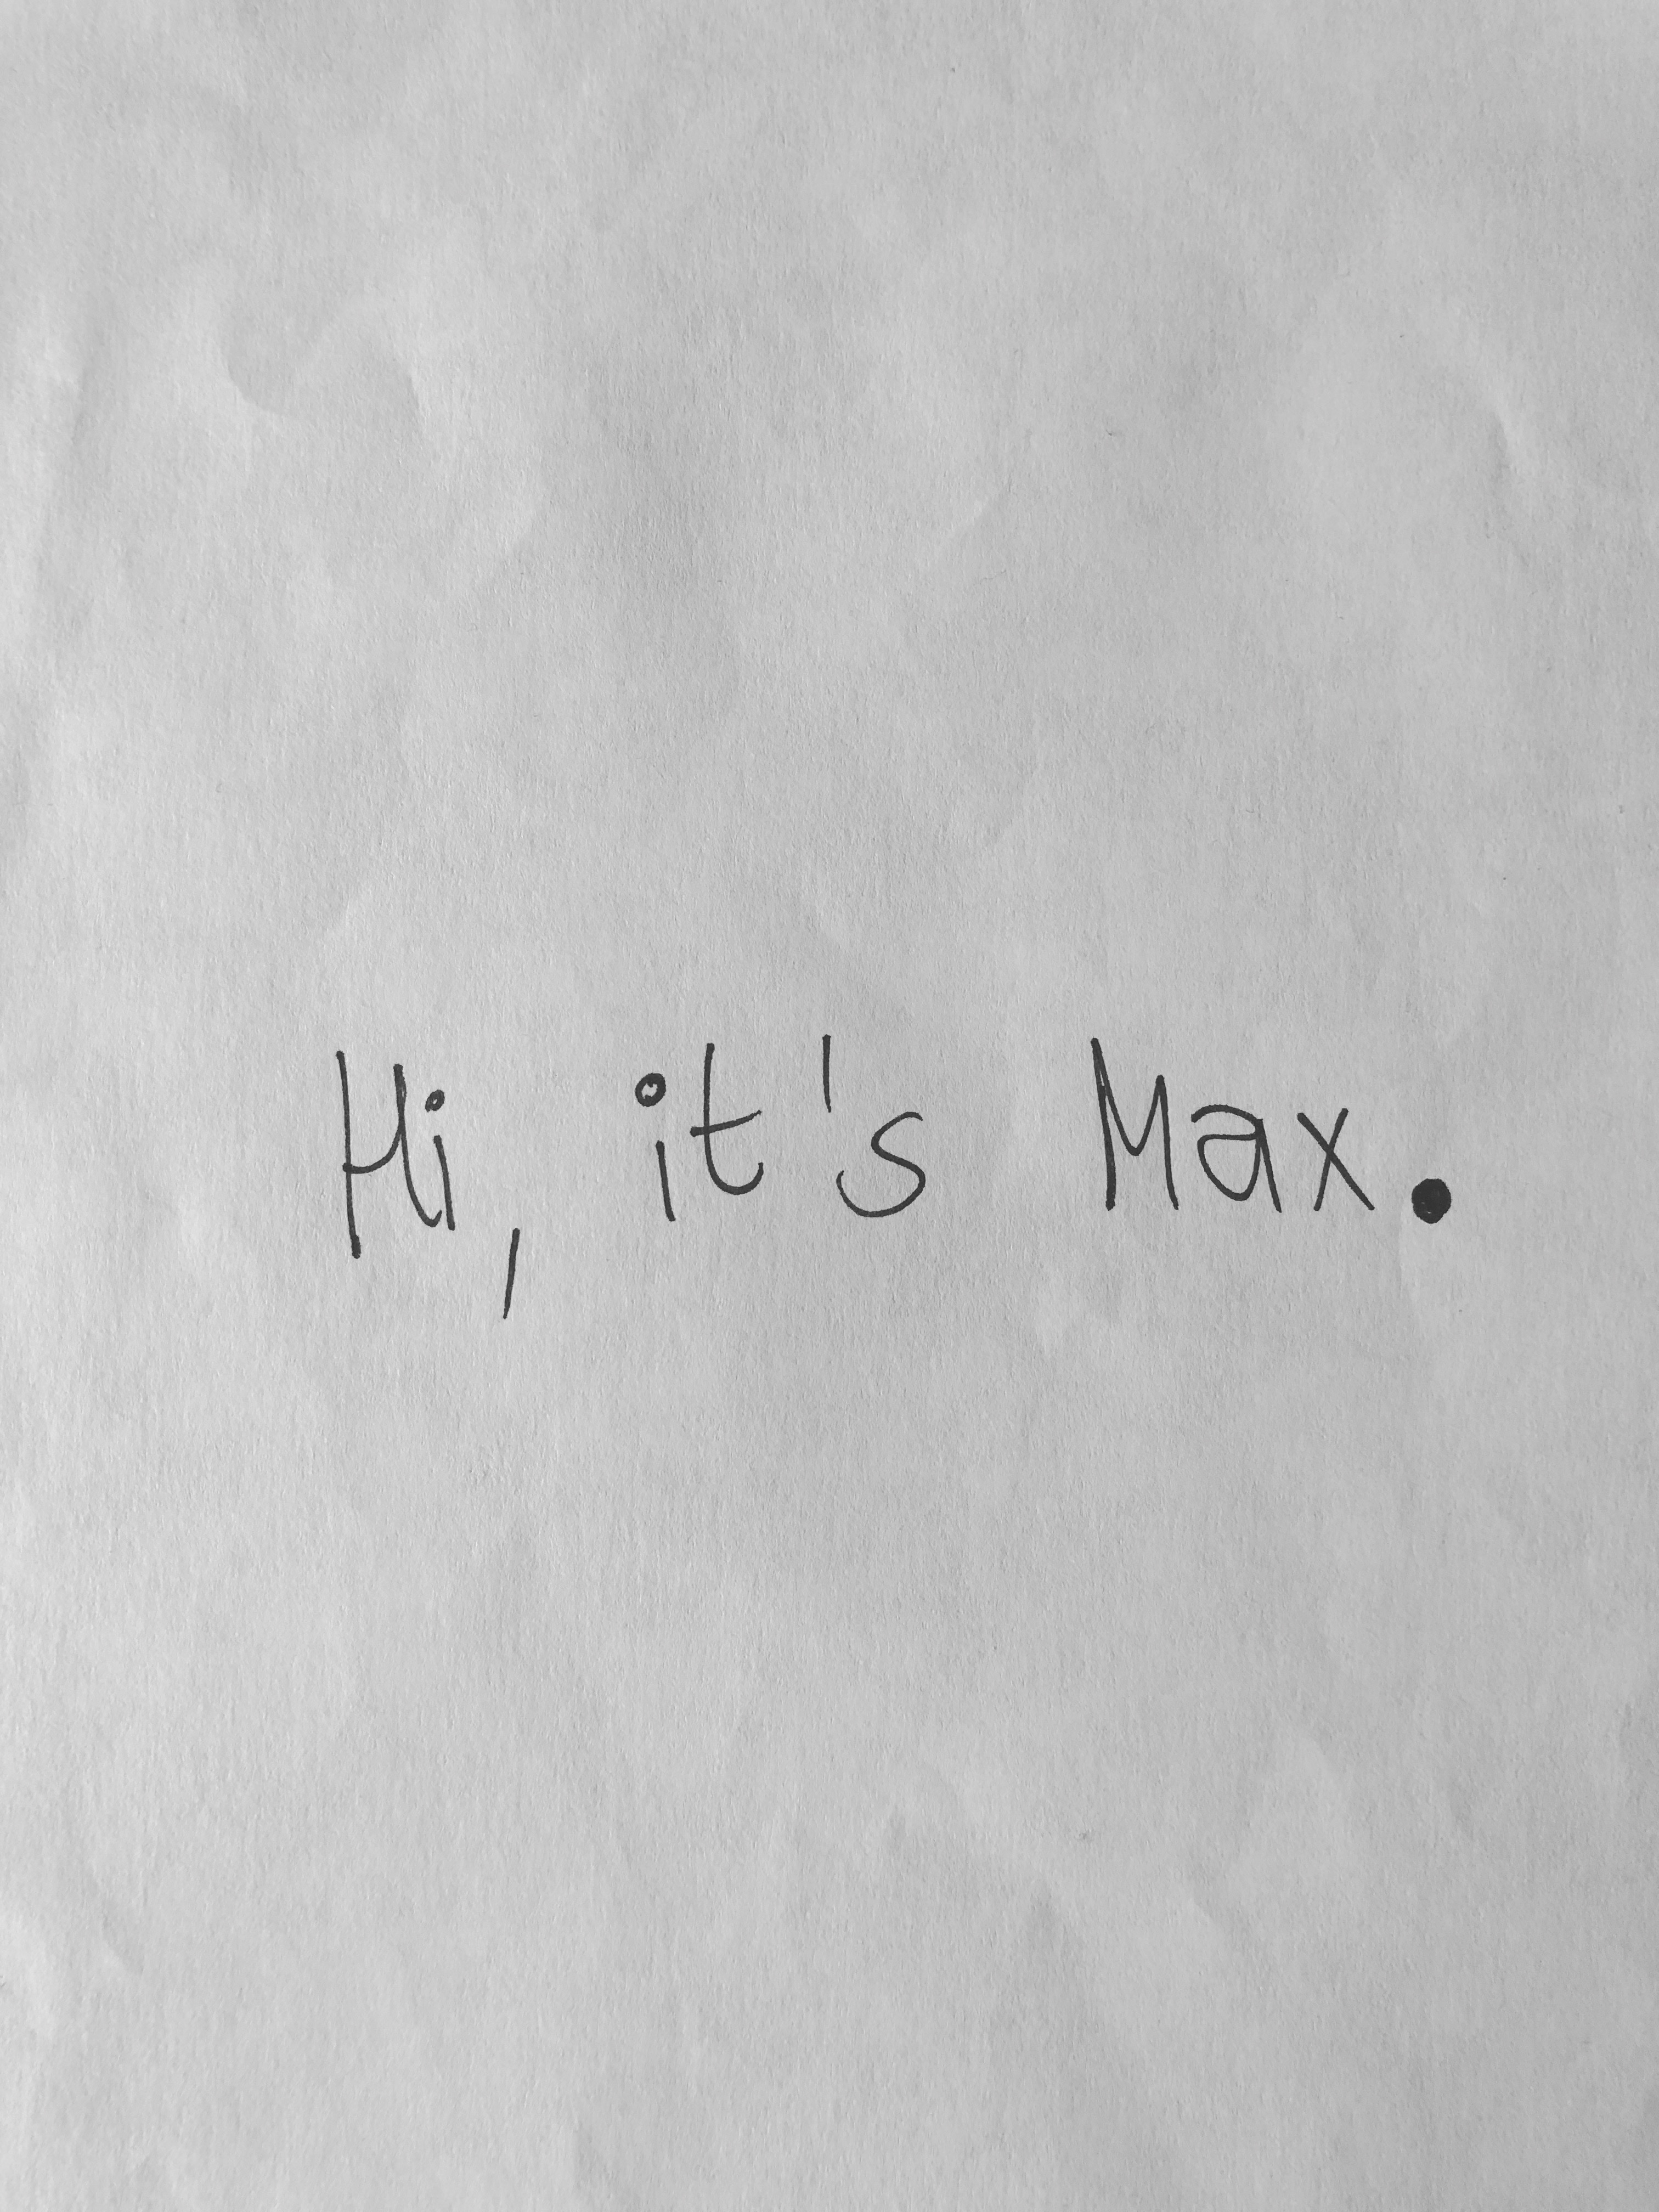 Hi, it's Max.